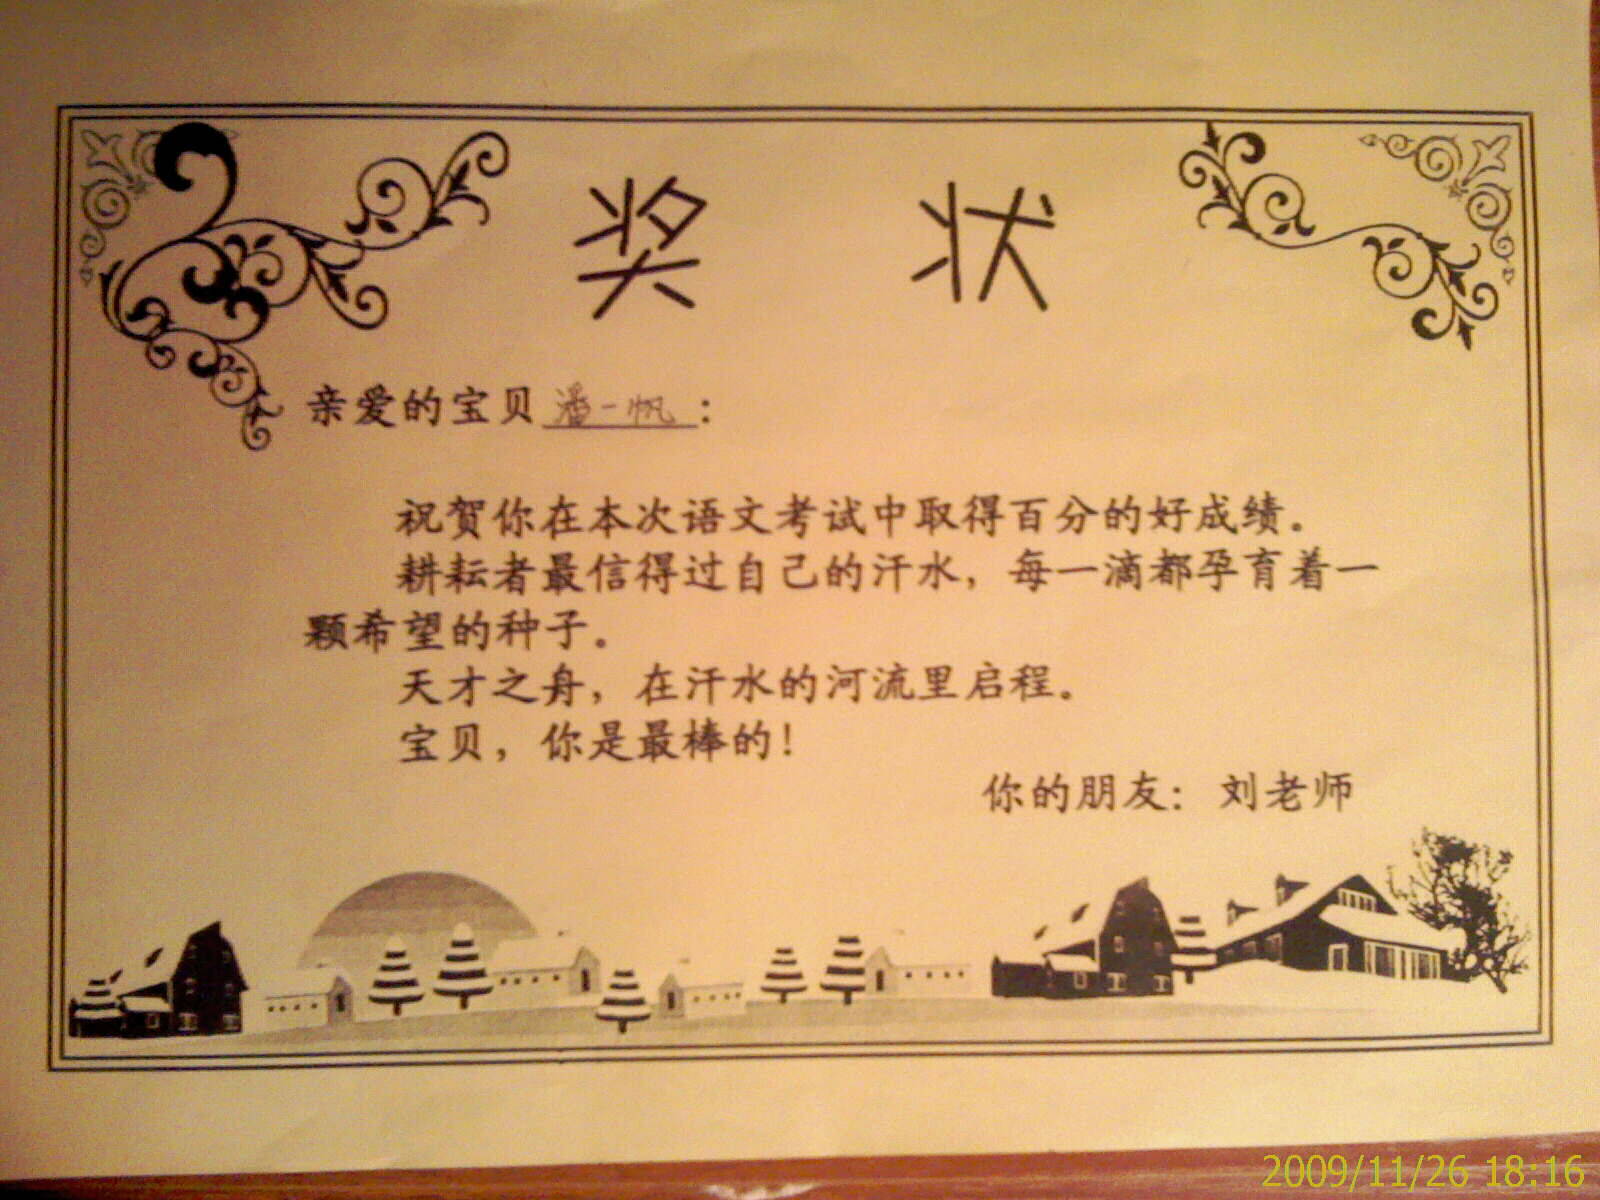 奖 状
亲爱的宝贝 潘一帆：
祝贺你在本次语文考试中取得百分的好成绩。
耕耘者最信得过自己的汗水，每一滴都孕育着一
颗希望的种子。
天才之舟，在汗水的河流里启程。
宝贝，你是最棒的！
你的朋友：刘老师
2009/11/26 18:16